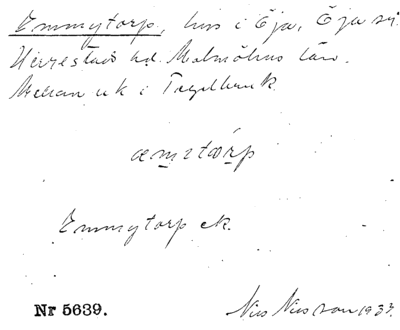 Emmytorp, hus i Öja, Öja sn.
Herrestads hd. Malmöhus län.
Mellan uk i Tegelbruk
æmitòrp
Emmytorp ek.
Nr 5639.
Nils Nilsson 1933.